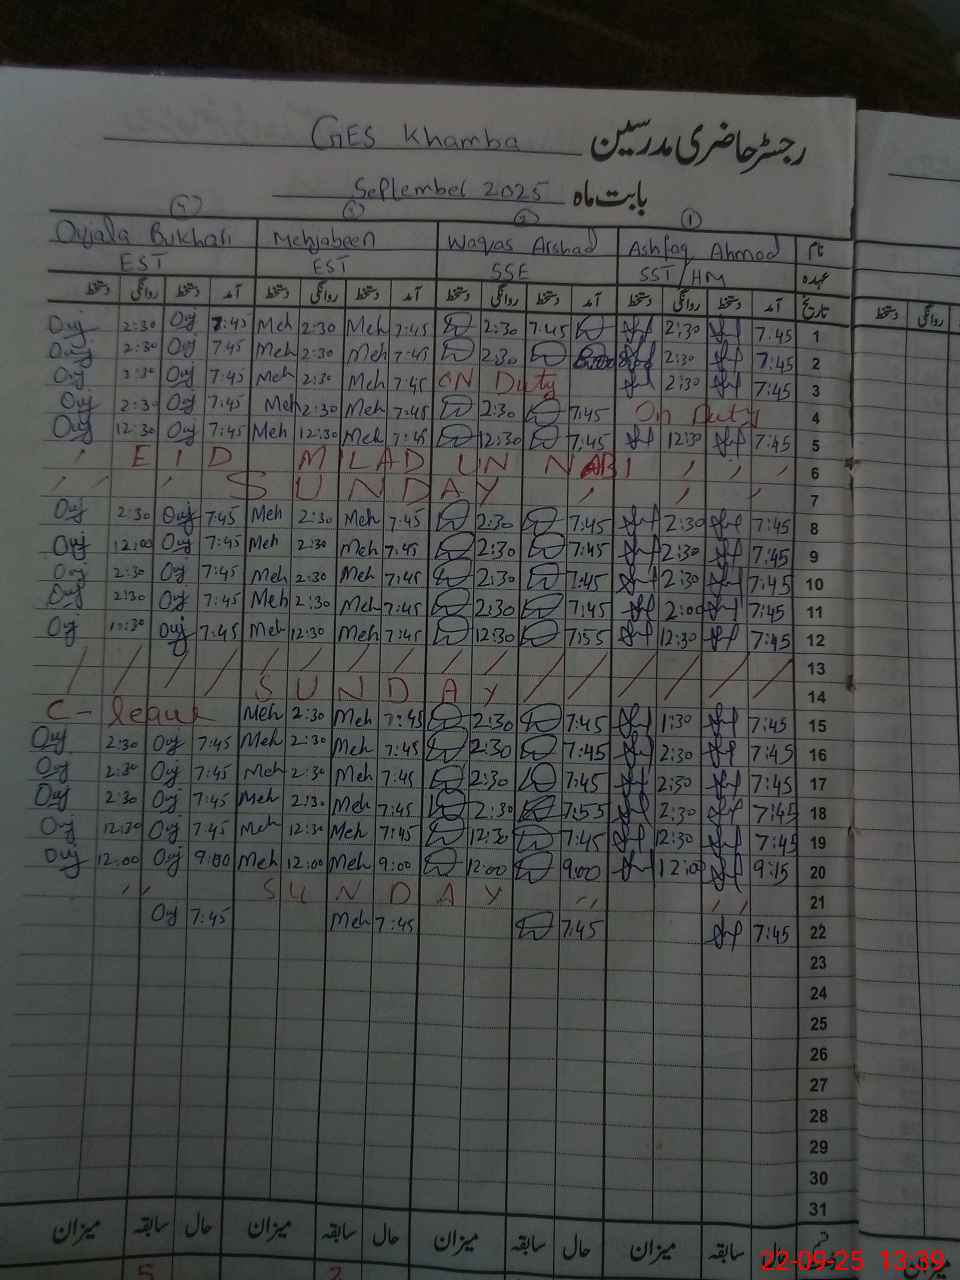 GES Khamba رجسٹر حاضری مدرسین
September 2025 بابت ماہ
Ojala Bukhari Mehjabeen Waqas Arshad Ashfaq Ahmad نام
EST EST SSE SST/HM عہدہ
دستخط روانگی دستخط آمد دستخط روانگی دستخط آمد دستخط روانگی دستخط آمد دستخط روانگی دستخط آمد تاریخ
Ouj 2:30 Ouj 7:45 Meh 2:30 Meh 7:45 2:30 7:45 2:30 7:45 1
Ouj 2:30 Ouj 7:45 Meh 2:30 Meh 7:45 2:30 2:30 7:45 2
Ouj 2:30 Ouj 7:45 Meh 2:30 Meh 7:45 ON Duty 2:30 7:45 3
Ouj 2:30 Ouj 7:45 Meh 2:30 Meh 7:45 2:30 7:45 On Duty 4
Ouj 12:30 Ouj 7:45 Meh 12:30 Meh 7:45 12:30 7:45 12:30 7:45 5
EID MILAD UN NABI 6
SUNDAY 7
Ouj 2:30 Ouj 7:45 Meh 2:30 Meh 7:45 2:30 7:45 2:30 7:45 8
Ouj 12:00 Ouj 7:45 Meh 2:30 Meh 7:45 2:30 7:45 2:30 7:45 9
Ouj 2:30 Ouj 7:45 Meh 2:30 Meh 7:45 2:30 7:45 2:30 7:45 10
Ouj 2:30 Ouj 7:45 Meh 2:30 Meh 7:45 2:30 7:45 2:00 7:45 11
Ouj Ouj 7:45 Meh 12:30 Meh 7:45 12:30 7:55 12:30 7:45 12
13
SUNDAY 14
C- leave Meh 2:30 Meh 7:45 2:30 7:45 1:30 7:45 15
Ouj 2:30 Ouj 7:45 Meh 2:30 Meh 7:45 2:30 7:45 2:30 7:45 16
Ouj 2:30 Ouj 7:45 Meh 2:30 Meh 7:45 2:30 7:45 2:30 7:45 17
Ouj 2:30 Ouj 7:45 Meh 2:30 Meh 7:45 2:30 7:55 2:30 7:45 18
Ouj 12:30 Ouj 7:45 Meh 12:30 Meh 7:45 12:30 7:45 12:30 7:45 19
Ouj 12:00 Ouj 9:00 Meh 12:00 Meh 9:00 12:00 9:00 12:00 9:15 20
SUNDAY 21
Ouj 7:45 Meh 7:45 7:45 7:45 22
23
24
25
26
27
28
29
30
31
میزان سابقہ حال میزان سابقہ حال میزان سابقہ حال میزان سابقہ حال
22-09-25 13:39